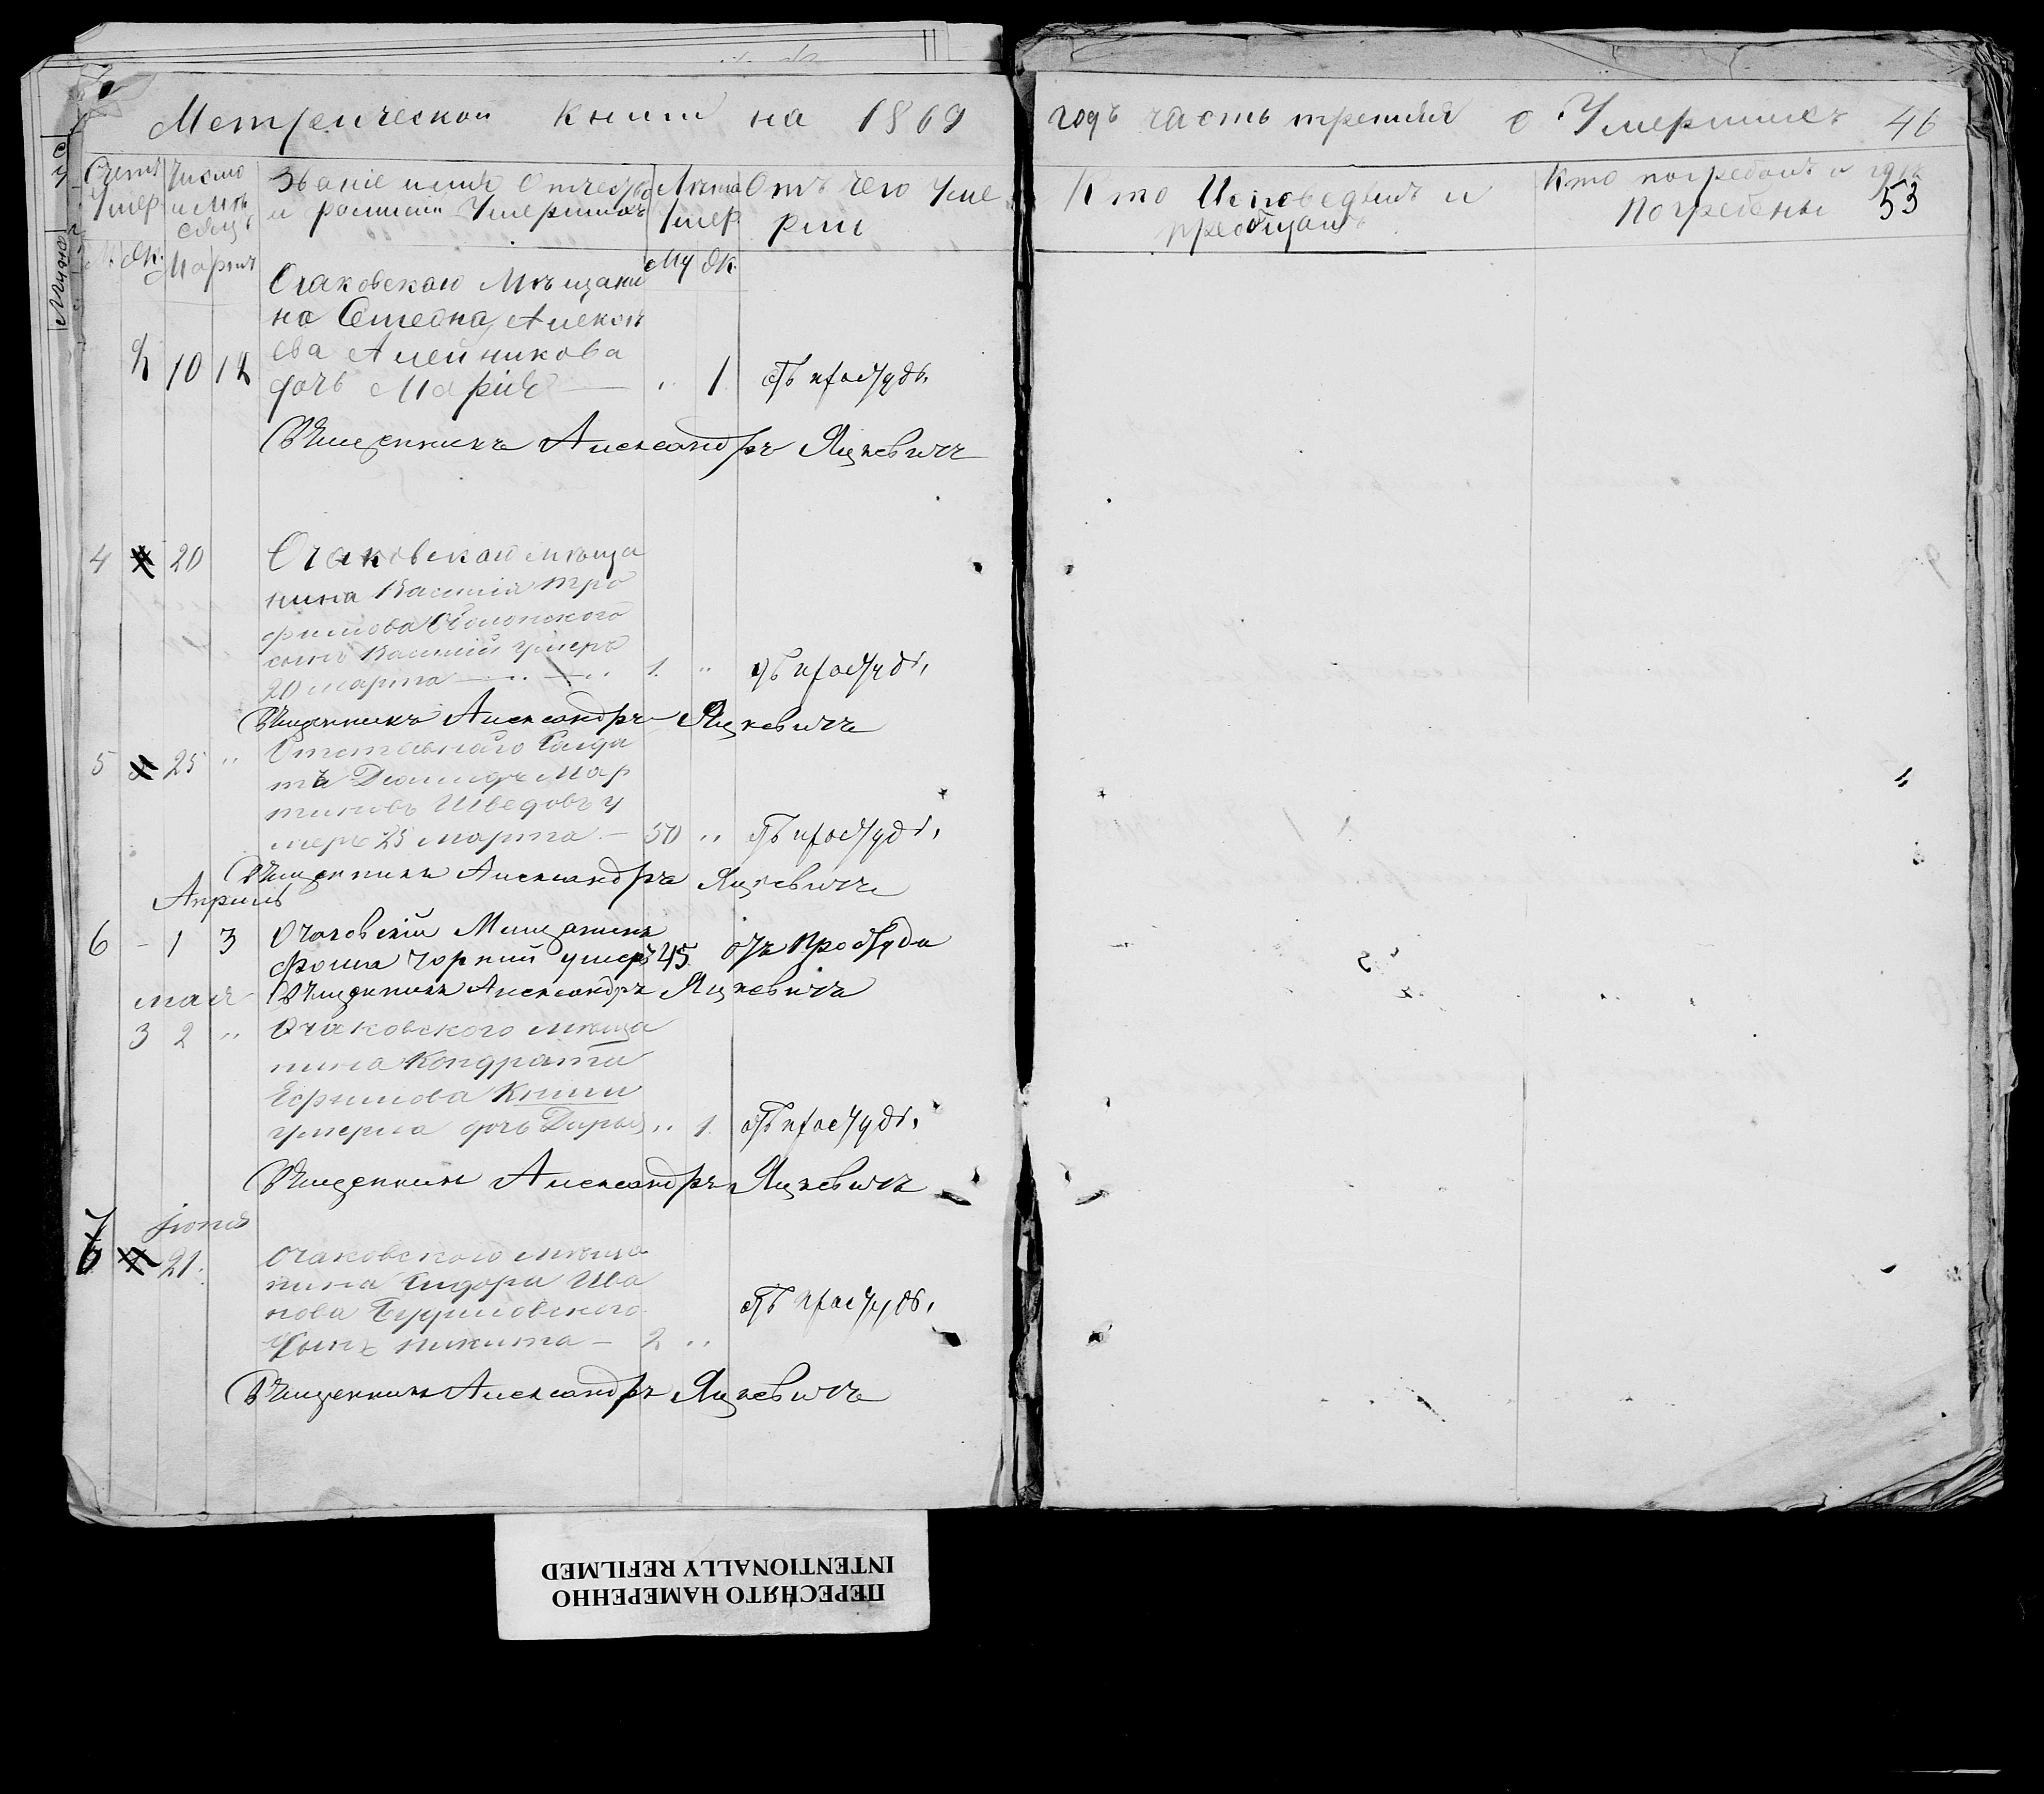 Метрической книги на 1869
годъ часть третия о Умершихъ 46
Счетъ Умер.
Число и Мѣсяцъ
Званіе имя Отчество и фамилія Умершихъ
Лѣта Умер.
Отъ чего Умерли
Кто Исповедывалъ и преобщалъ
Кто погребалъ и где Погребены 53
М. Ж. Мартъ Му Ж.
Очаковскаго Мѣщани
на Семеона Алексѣ
ева Алейникова
2 10 12 дочь Марія — „ 1 отъ простуды.
Священникъ Александръ Яцкевичъ
4 20 Очаковскаго мѣща
нина Василія Тро
фимова Оболонского
сынъ Василій умеръ
20 марта — 1. „ отъ простуды,
Священникъ Александръ Яцкевичъ
5 25 „ Отставнаго Солда
та Мар
тиновъ Шведовъ у
меръ 25 марта — 50 „ отъ простуды,
Священникъ Александръ Яцкевичъ
Апрѣль
6 - 1 3 Очаковскій Мищанинъ
Фома Чорний умеръ 45 отъ Простуды
мая Священникъ Александръ Яцкевичъ
3 2 „ Очаковского мѣща
нина Кондрата
Ефимова Книги
умерла дочь Дарья „ 1. отъ простуды,
Священникъ Александръ Яцкевичъ
Іюнь
7 21. Очаковского мѣща
нина Сидора Ива
нова
сынъ никита — 2 „ отъ простуды,
Священникъ Александръ Яцкевичъ
ПЕРЕСНЯТО НАМЕРЕННО
INTENTIONALLY REFILMED